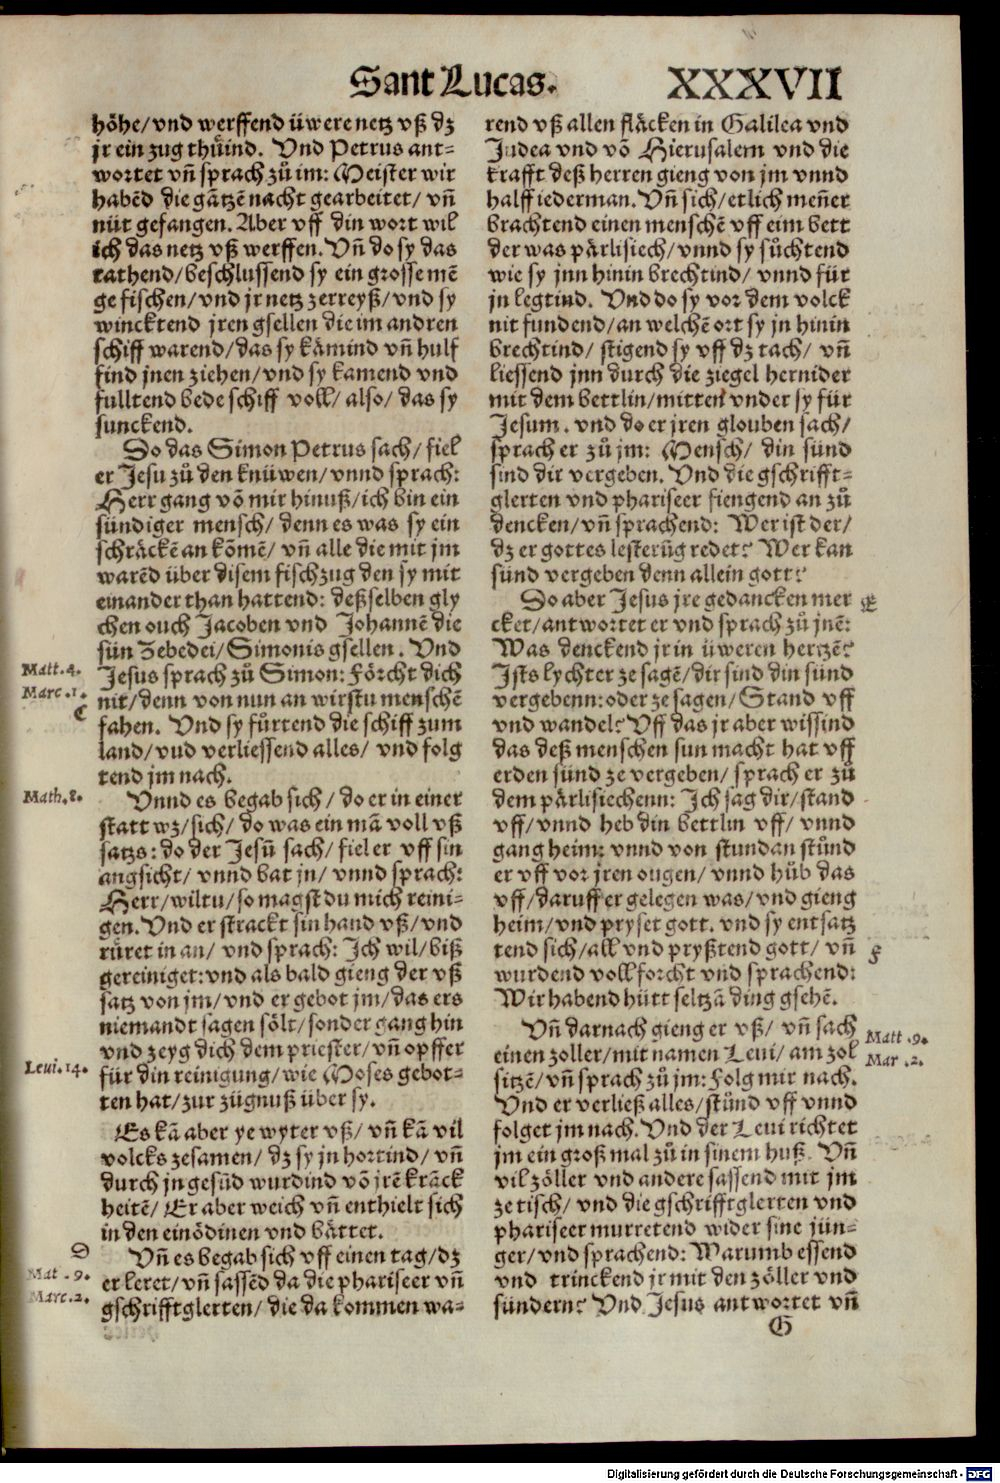 Sant Lucas. XXXVII
höhe/vnd werffend üwere netz vß dz
jr ein zug thüind. Vnd Petrus ant-
wortet vñ sprach zů im: Meister wir
habẽd die gãtzẽ nacht gearbeitet/ vñ
nüt gefangen. Aber vff din wort wil
ich das netz vß werffen. Vñ do sy das
tathend/beschlussend sy ein grosse mẽ
ge fischen/vnd jr netz zerreyß/vnd sy
wincktend jren gsellen die im andren
schiff warend/das sy kämind vñ hulf
find jnen ziehen/vnd sy kamend vnd
fulltend bede schiff voll/ also/ das sy
sunckend.
Do das Simon Petrus sach/ fiel
er Jesu zů den knüwen/vnnd sprach:
Herr gang võ mir hinuß/ich bin ein
sündiger mensch/ denn es was sy ein
schräckẽ an kõmẽ/ vñ alle die mit jm
warẽd über disem fischzug den sy mit
einander than hattend: deßselben gly
chen ouch Jacoben vnd Johannẽ die
sün Zebedei/Simonis gsellen. Vnd
Matt.4. Jesus sprach zů Simon: Förcht dich
Marc.1. nit/denn von nun an wirstu menschẽ
C fahen. Vnd sy fürtend die schiff zum
land/vnd verliessend alles/ vnd folg
tend jm nach.
Math.8. Vnnd es begab sich/ do er in einer
statt wz/sich/ do was ein mã voll vß
satzs: do der Jesũ sach/ fiel er vff sin
angsicht/ vnnd bat jn/ vnnd sprach:
Herr/wiltu/so magst du mich reini-
gen. Vnd er strackt sin hand vß/vnd
rüret in an/ vnd sprach: Ich wil/biß
gereiniget: vnd als bald gieng der vß
satz von jm/vnd er gebot jm/das ers
niemandt sagen sölt/sonder gang hin
vnd zeyg dich dem priester/vñ opffer
Leui.14. für din reinigung/wie Moses gebot-
ten hat/zur zügnuß über sy.
Es kã aber ye wyter vß/ vñ kã vil
volcks zesamen/ dz sy jn hortind/ vñ
durch jn gesũd wurdind võ jrẽ kräck
heitẽ/ Er aber weich vñ enthielt sich
in den einödinen vnd bättet.
D Vñ es begab sich vff einen tag/dz
Mat.9. er leret/vñ sassẽd da die phariseer vñ
Marc.2. gschrifftglerten/ die da kommen wa-
rend vß allen fläcken in Galilea vnd
Judea vnd võ Hierusalem vnd die
krafft deß herren gieng von jm vnnd
halff iederman. Vñ sich/etlich meñer
brachtend einen menschẽ vff eim bett
der was pärlisiech/vnnd sy sůchtend
wie sy jnn hinin brechtind/ vnnd für
jn legtind. Vnd do sy vor dem volck
nit fundend/an welchẽ ort sy jn hinin
brechtind/ stigend sy vff dz tach/ vñ
liessend jnn durch die ziegel hernider
mit dem bettlin/mitten vnder sy für
Jesum. vnd do er jren glouben sach/
sprach er zů jm: Mensch/ din sünd
sind dir vergeben. Vnd die gschrifft-
glerten vnd phariseer fiengend an zů
dencken/vñ sprachend: Wer ist der/
dz er gottes lesterũg redet? Wer kan
sünd vergeben denn allein gott?
So aber Jesus jre gedancken mer E
cket/antwortet er vnd sprach zů jnẽ:
Was denckend jr in üweren hertzẽ?
Ists lychter ze sagẽ/dir sind din sünd
vergebenn: oder ze sagen/Stand vff
vnd wandel? Vff das jr aber wissind
das deß menschen sun macht hat vff
erden sünd ze vergeben/ sprach er zů
dem pärlisiechenn: Ich sag dir/stand
vff/vnnd heb din bettlin vff/ vnnd
gang heim: vnnd von stundan stůnd
er vff vor jren ougen/ vnnd hůb das
vff/daruff er gelegen was/vnd gieng
heim/vnd pryset gott. vnd sy entsatz
tend sich/all vnd pryßtend gott/ vñ F
wurdend voll forcht vnd sprachend:
Wir habend hütt seltzã ding gsehẽ.
Vñ darnach gieng er vß/ vñ sach Matt.9.
einen zoller/mit namen Leui/ am zol Mar.2.
sitzẽ/vñ sprach zů jm: Folg mir nach.
Vnd er verließ alles/stůnd vff vnnd
folget jm nach. Vnd der Leui richtet
jm ein groß mal zů in sinem huß. Vñ
vil zöller vnd andere sassend mit jm
ze tisch/ vnd die gschrifftglerten vnd
phariseer murretend wider sine jün-
ger/vnd sprachend: Warumb essend
vnd trinckend jr mit den zöller vnd
sündern? Vnd Jesus antwortet vñ
G
Digitalisierung gefördert durch die Deutsche Forschungsgemeinschaft - DFG